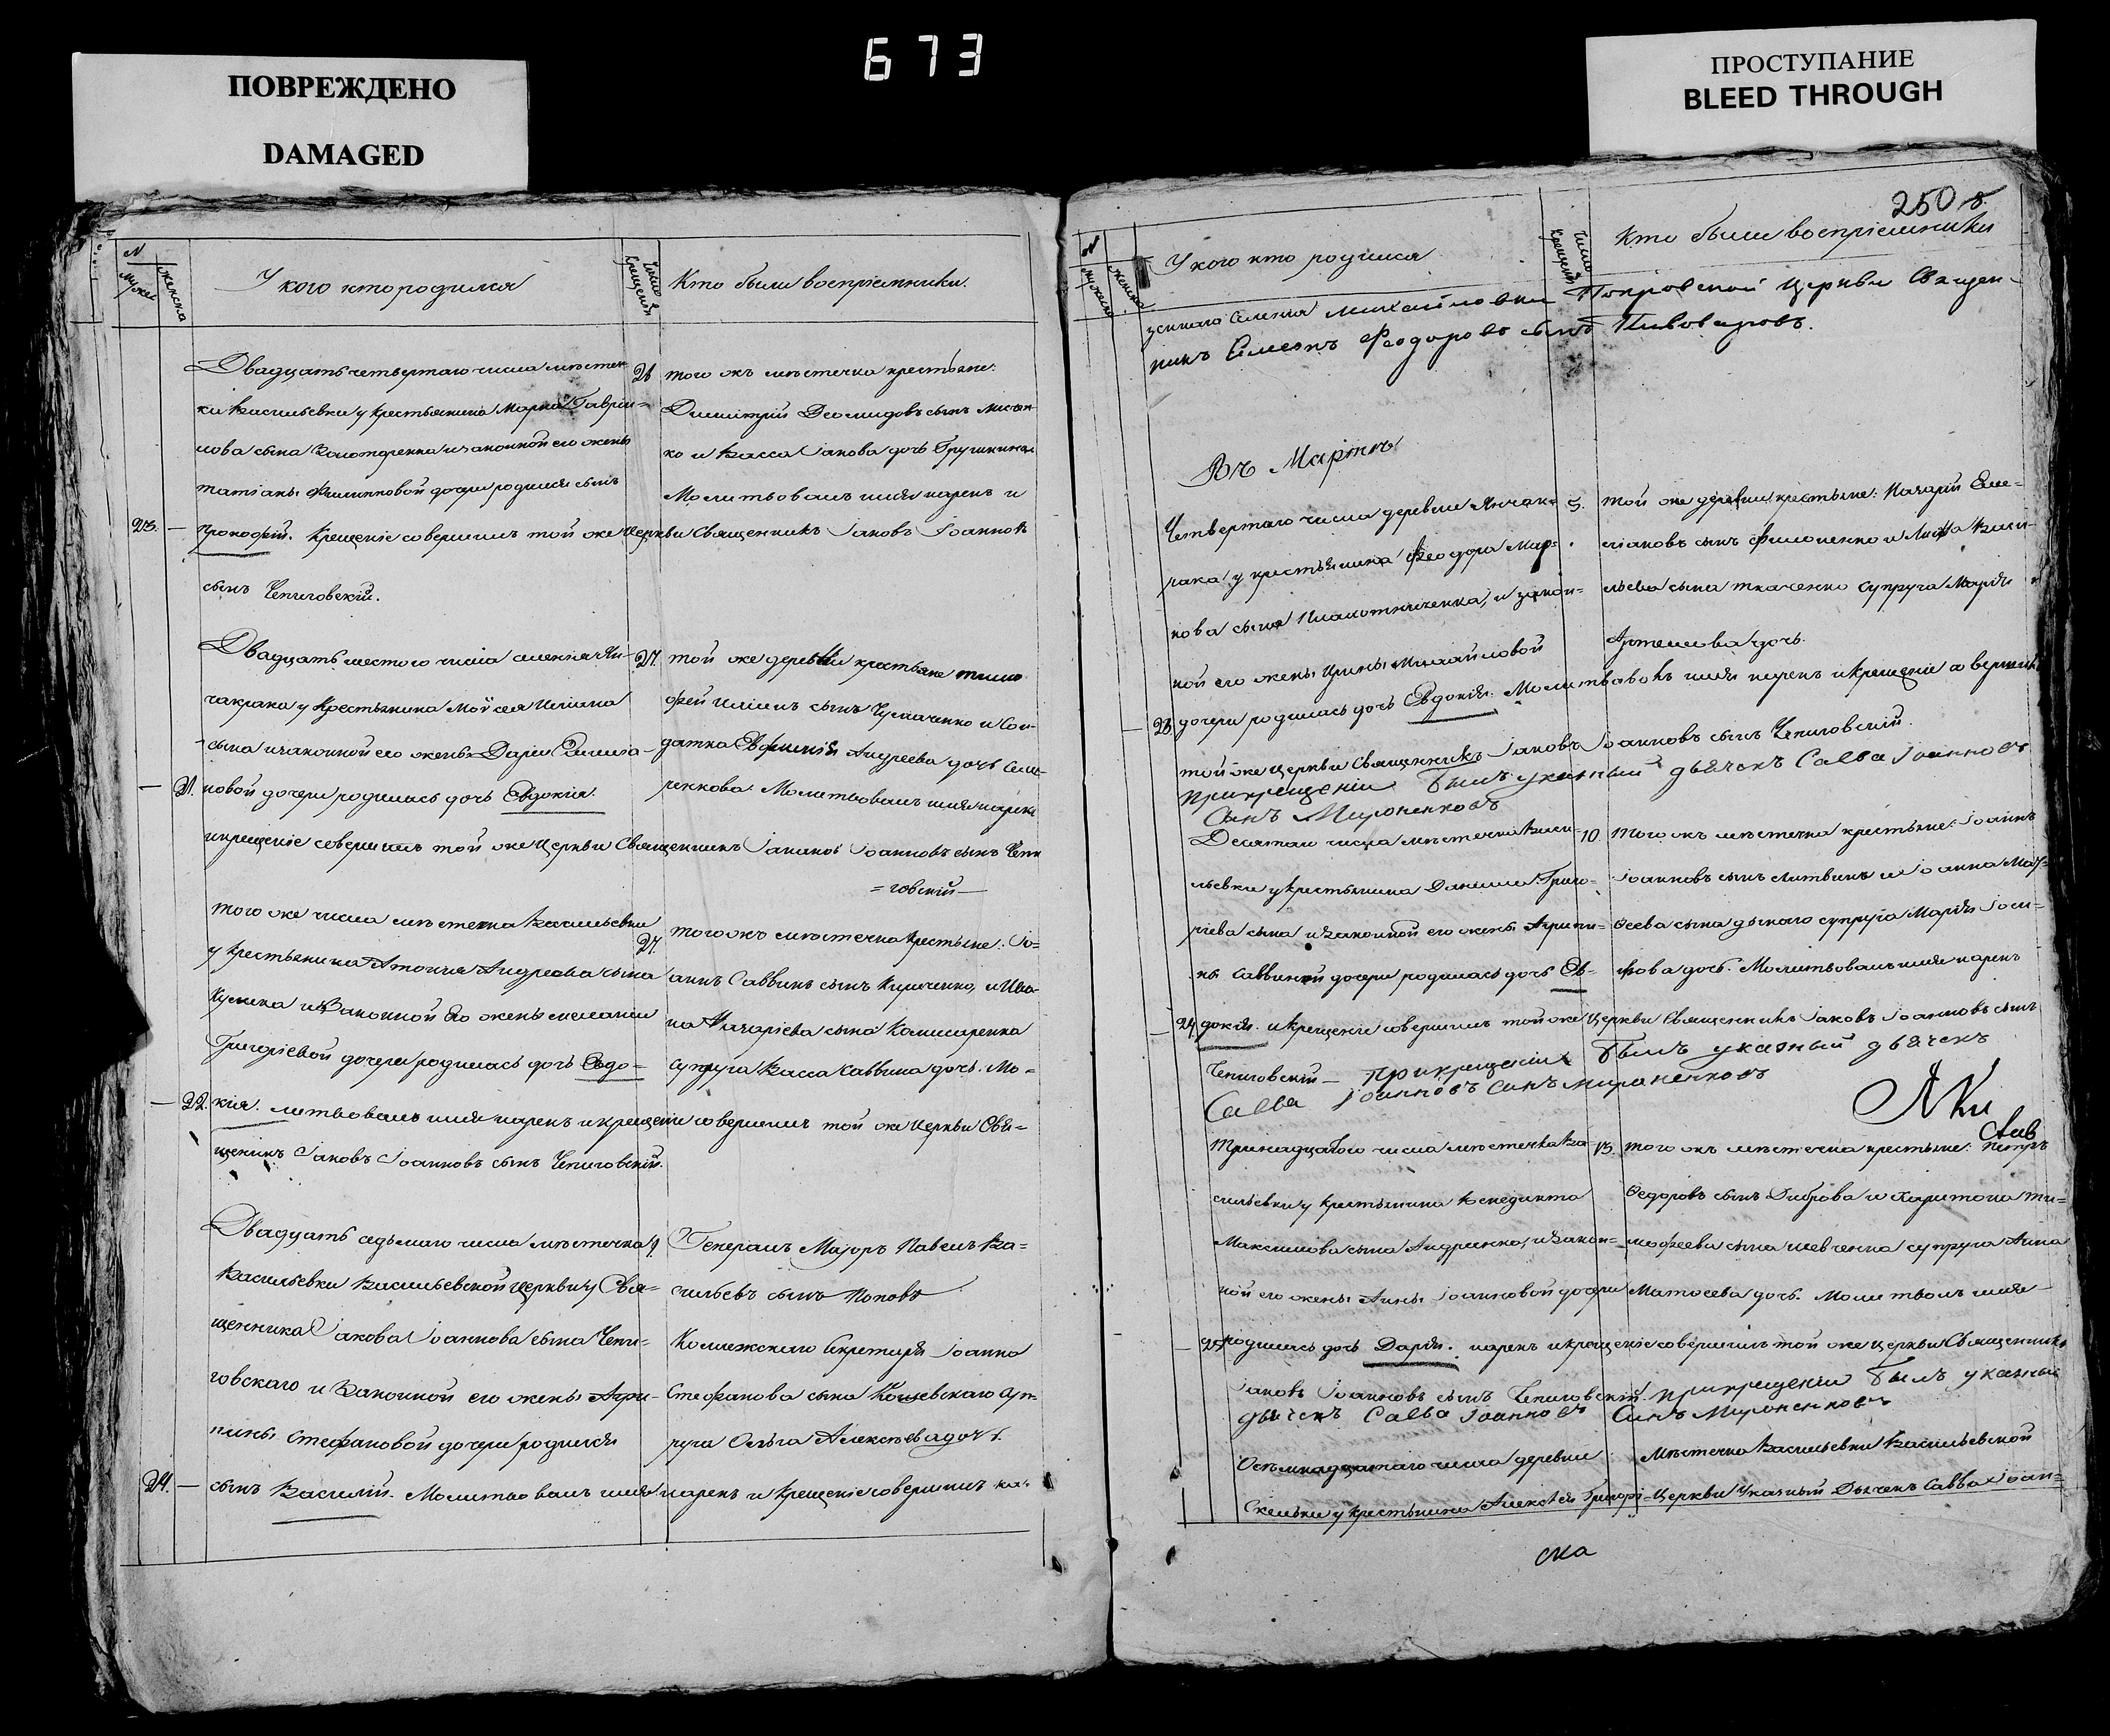 673
ПОВРЕЖДЕНО
DAMAGED
ПРОСТУПАНИЕ
BLEED THROUGH
N
мужес
женска
У кого кто родился
Число крещенія
Кто были воспріемники.
Двадцать четвертаго числа местеч
ки Васильевки у крестьянина Марка Гаврии=
лова сына Золотаренка и законной его жены
татіаны Филипповой дочери родился сынъ
23. — Прокофій. Крещеніе совершилъ той же церкви Священникъ Іаковъ Іоанновъ
сынъ Чепиговскій.
26
того жъ местечка крестьяне:
Димитрий Деомидовъ сынъ
ко и Васса Іакова дочь
Молитвовалъ имя нарекъ и
Двадцать шестого числа селенія Ян-
чакрака у Крестьянина Мойсея Иліина
сына и законной его жены Даріи
— 21. новой дочери родилась дочь Евдокія.
и крещеніе совершилъ той же Церкви Священникъ Іаковъ Іоанновъ сынъ Чепи
=говскій —
27.
той же деревни крестьяне тимо
фей Иліинъ сынъ Чумаченко и Сол-
датка Евфимія Андреева дочь
ренкова. Молитвовалъ имя нарекъ
того же числа местечка Васильевки
у крестьянина Антонія Андреева сына
и Законной Его жены меланіи
Григоріевой дочери родилась дочь Евдо=
— 22. кія. литвовалъ имя нарекъ и крещеніе совершилъ той же Церкви Свя=
щеникъ Іаковъ Іоанновъ сынъ Чепиговскій.
27.
того жъ местечка Крестьяне: Іо=
аннъ Саввинъ сынъ Кириченко, и Ива-
на Назаріева сына Комисаренка
Супруга Васса Саввина дочь. Мо=
Двадцать седьмаго числа местечка
Васильевки Васильевской церкви у Свя=
щенника Іакова Іоаннова сына Чепи=
говскаго и Законной его жены Агри-
пины Стефановой дочери родился
24. — сынъ Василий. Молитвовалъ имя нарекъ и Крещеніе совершилъ
Генералъ Маіоръ Павелъ Ва=
сильевъ сынъ Поповъ
Коллежскаго Секретаря Іоанна
Стефанова сына
руга Ольга Алексѣева дочь.
250
N
У кого кто родился
Число крещенія
Кто были воспріемники
селенія михайловки Покровской Церкви Священ-
никъ Симеонъ Феодоровъ сынъ Пивоваровъ.
Въ Мартѣ
Четвертаго числа деревни Янчак=
рака у крестьянина Феодора Мар=
кова сына Плахотниченка, и закон=
ной его жены Ирины Михайловой
23. дочери родилась дочь Евдокія. Молитвовалъ имя нарекъ и крещеніе совершилъ
той же церкви Священникъ Іаковъ Іоанновъ сынъ Чепиговскій.
При крещеніи былъ указный дьячекъ Савва Іоанновъ
Синъ Мироненковъ
5.
той же деревни крестьяне: Назарій Еме=
ліановъ сынъ Филоненко и
льева сына ткаченко супруга Марія
Артемова дочь.
Десятаго числа местечка Васи=
льевки у крестьянина Даниила Григо=
ріева сына и Законной его жены Агрипи=
ны Саввиной дочери родилась дочь Ев=
— 24. докія. и крещеніе совершилъ той же Церкви Священникъ Іаковъ Іоанновъ сынъ
Чепиговскій — При крещеніи былъ указный дьячекъ
Савва Іоанновъ Синъ Мироненковъ
10.
того жъ местечка крестьяне: Іоаннъ
Іоанновъ сынъ Литвинъ и Іоанна Мат=
ѳеева сына супруга Марія Іоси=
фова дочь. Молитвовалъ имя нарекъ
Тринадцатого числа местечка Ва=
сильевки у крестьянина Венедикта
Максимова сына Андриенка, и Закон=
ной его жены Анны Іоанновой дочери
— 25. родилась дочь Дарія. нарекъ и крещеніе совершилъ той же церкви Священникъ
Іаковъ Іоанновъ сынъ Чепиговскій. При крещеніи былъ указный
дьячекъ Савва Іоанновъ Синъ Мироненковъ
13.
того жъ местечка крестьяне: Петръ
Ѳедоровъ сынъ Диброва и Харитона ти=
мофеева сына шевченка супруга Анна
Матѳеева дочь. Молитволъ имя
Осьмнадцатаго числа деревни
Скельки у крестьянина Алексѣя Григорі=
Местечка Васильевки Васильевской
Церкви Указный Дьячекъ Савва Іоан=
ска